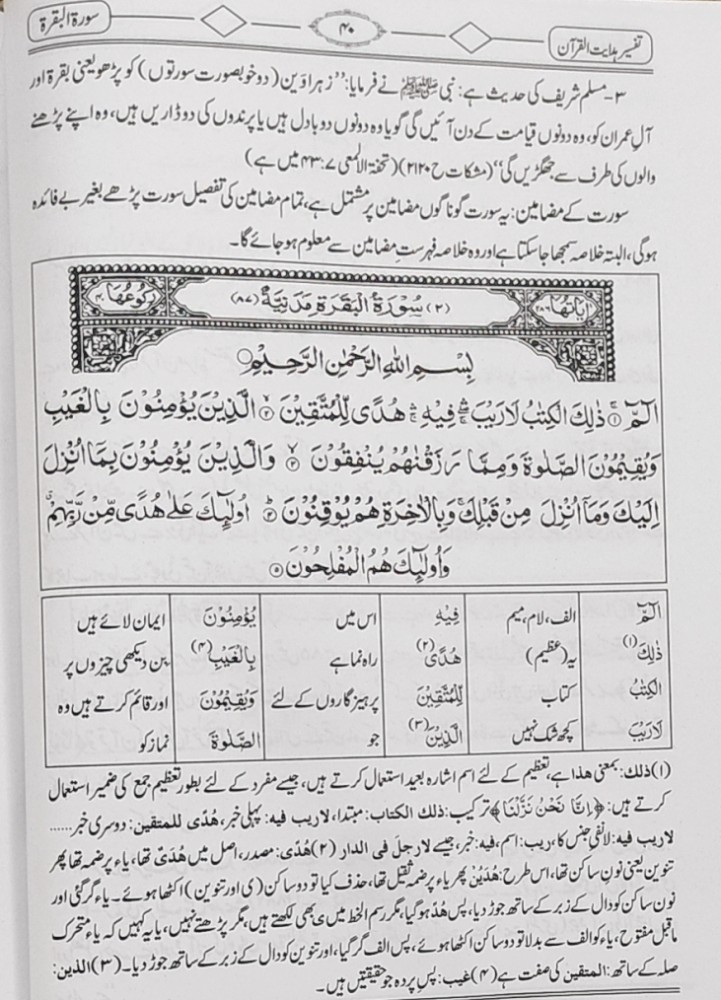 تفسیر ہدایت القرآن
۴۰
سورۃ البقرۃ
۳- مسلم شریف کی حدیث ہے: نبی ﷺ نے فرمایا: ”زہراوَین (دو خوبصورت سورتوں) کو پڑھو یعنی بقرۃ اور
آلِ عمران کو، وہ دونوں قیامت کے دن آئیں گی گویا وہ دونوں دو بادل ہیں یا پرندوں کی دو ڈاریں ہیں، وہ اپنے پڑھنے
والوں کی طرف سے جھگڑیں گی“ (مشکات ح ۲۱۲۰) (تحفۃ الالمعی ۷:۴۳ میں ہے)
سورت کے مضامین: یہ سورت گوناگوں مضامین پر مشتمل ہے، تمام مضامین کی تفصیل سورت پڑھے بغیر بے فائدہ
ہوگی، البتہ خلاصہ سمجھا جاسکتا ہے اور وہ خلاصہ فہرستِ مضامین سے معلوم ہو جائے گا۔
اٰیاتھا ۲۸۶
(۲) سُوْرَۃُ الْبَقَرَۃِ مَدَنِیَّۃٌ (۸۷)
رکوعھا ۴۰
بِسْمِ اللّٰهِ الرَّحْمٰنِ الرَّحِيْمِ
الٓمّٓ ۚ۱ ذٰلِكَ الْكِتٰبُ لَا رَيْبَ ۛ فِيْهِ ۛ هُدًى لِّلْمُتَّقِيْنَ ۲ الَّذِيْنَ يُؤْمِنُوْنَ بِالْغَيْبِ
وَيُقِيْمُوْنَ الصَّلٰوةَ وَمِمَّا رَزَقْنٰهُمْ يُنْفِقُوْنَ ۳ وَالَّذِيْنَ يُؤْمِنُوْنَ بِمَآ اُنْزِلَ
اِلَيْكَ وَمَآ اُنْزِلَ مِنْ قَبْلِكَ ۚ وَبِالْاٰخِرَةِ هُمْ يُوْقِنُوْنَ ۴ اُولٰٓئِكَ عَلٰى هُدًى مِّنْ رَّبِّهِمْ
وَاُولٰٓئِكَ هُمُ الْمُفْلِحُوْنَ ۵
الٓمّٓ الف، لام، میم فِيْهِ اس میں يُؤْمِنُوْنَ ایمان لائے ہیں
ذٰلِكَ (۱) یہ (عظیم) هُدًى (۲) راہ نما ہے بِالْغَيْبِ (۴) بن دیکھی چیزوں پر
الْكِتٰبُ کتاب لِّلْمُتَّقِيْنَ پرہیزگاروں کے لئے وَيُقِيْمُوْنَ اور قائم کرتے ہیں وہ
لَا رَيْبَ کچھ شک نہیں الَّذِيْنَ (۳) جو الصَّلٰوةَ نماز کو
(۱) ذلك: بمعنی ھذا ہے، تعظیم کے لئے اسم اشارہ بعید استعمال کرتے ہیں، جیسے مفرد کے لئے بطور تعظیم جمع کی ضمیر استعمال
کرتے ہیں: ﴿اِنَّا نَحْنُ نَزَّلْنَا﴾ ترکیب: ذلك الكتاب: مبتدا، لاريب فيه: پہلی خبر، هُدًى للمتقين: دوسری خبر......
لاريب فيه: لا نفی جنس کا، ريب: اسم، فيه: خبر، جیسے لارجلَ فی الدار (۲) هُدًى: مصدر، اصل میں هُدَىٌ تھا، یاء پر ضمہ تھا پھر
تنوین یعنی نون ساکن تھا، اس طرح: هُدَيُنْ پھر یاء پر ضمہ ثقیل تھا، حذف کیا تو دو ساکن (ی اور تنوین) اکٹھا ہوئے۔ یاء گر گئی اور
نون ساکن کو دال کے زبر کے ساتھ جوڑ دیا، پس هُدً ہو گیا، مگر رسم الخط میں ی بھی لکھتے ہیں، مگر پڑھتے نہیں، یا یہ کہیں کہ یاء متحرک
ماقبل مفتوح، یاء کو الف سے بدلا تو دو ساکن اکٹھا ہوئے، پس الف گر گیا، اور تنوین کو دال کے زبر کے ساتھ جوڑ دیا۔ (۳) الذين:
صلہ کے ساتھ: المتقين کی صفت ہے (۴) غیب: پس پردہ جو حقیقتیں ہیں۔